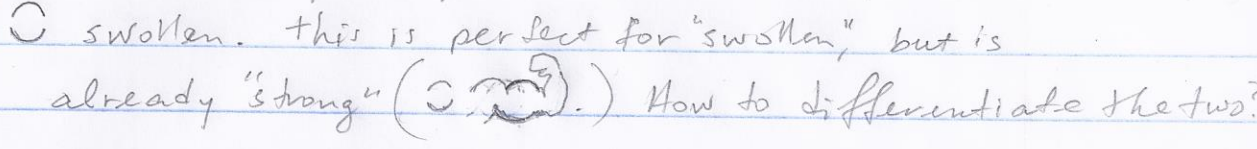 swollen. this is perfect for "swollen," but is
already "strong" ( .) How to differentiate the two?